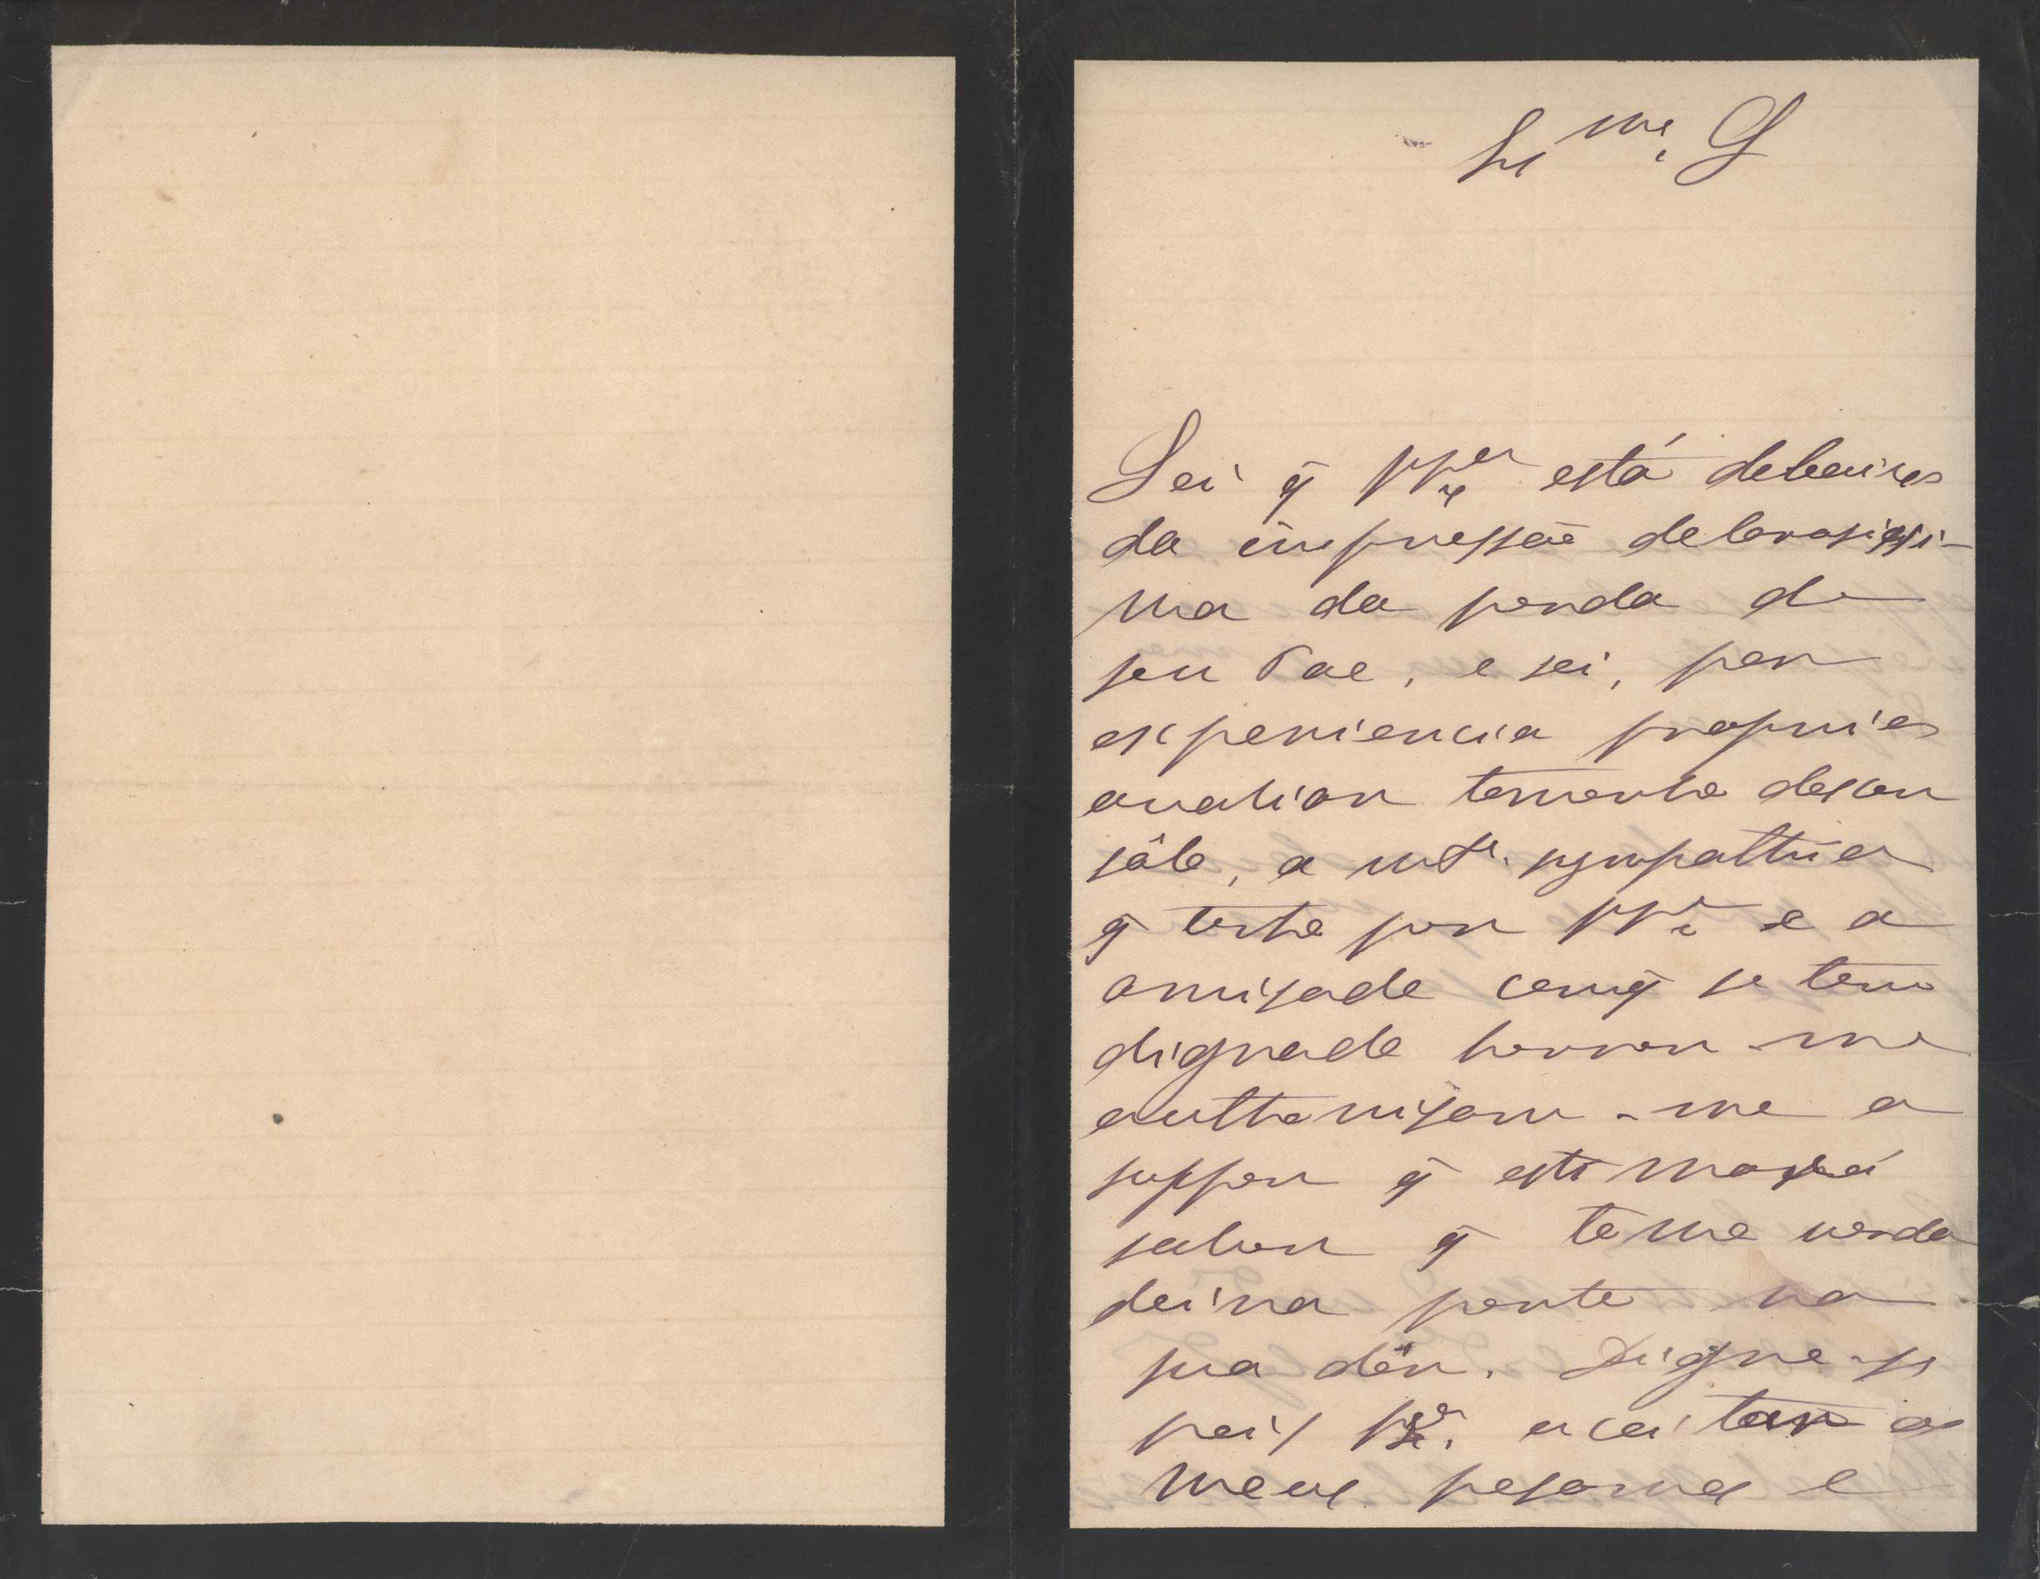 Sei q̃ está debaixo
da impressão dolorosissi-
ma da perda de
seu Pae, e sei, por
experiencia propria
avaliar tamanho descon
sôlo, a mta. sympathia
q̃ tenho por e a
amisade com q̃ se tem
dignado honrar-me
authorisam-me a
suppor q̃ estimará
saber q̃ tomo verda
deira parte na
sua dôr. Digne-se
pois aceitar os
meus pesames e